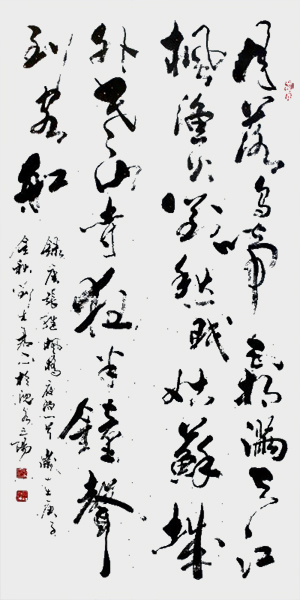 月落烏啼霜滿天江
楓漁火對愁眠姑蘇城
外寒山寺夜半鐘聲
到客船
錄唐張繼楓橋夜泊詩一首歲在庚子
金秋劉士於沈水之陽